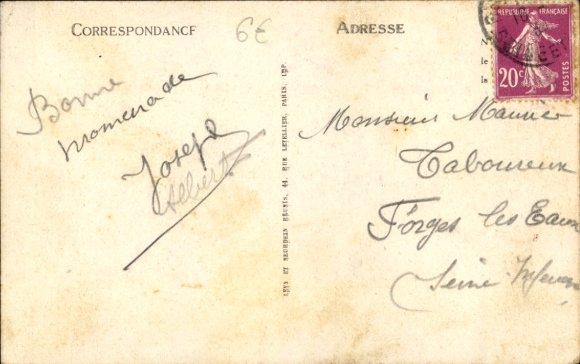 CORRESPONDANCE
6€
ADRESSE
RÉPUBLIQUE FRANÇAISE
20c
POSTES
N
le
la
Bonne
promenade
Joseph
Albert
LEVY ET NEURDEIN RÉUNIS, 44, RUE LETELLIER, PARIS, IMP.
Monsieur Maurice
Taboureux
Forges les Eaux
Seine-Inférieure